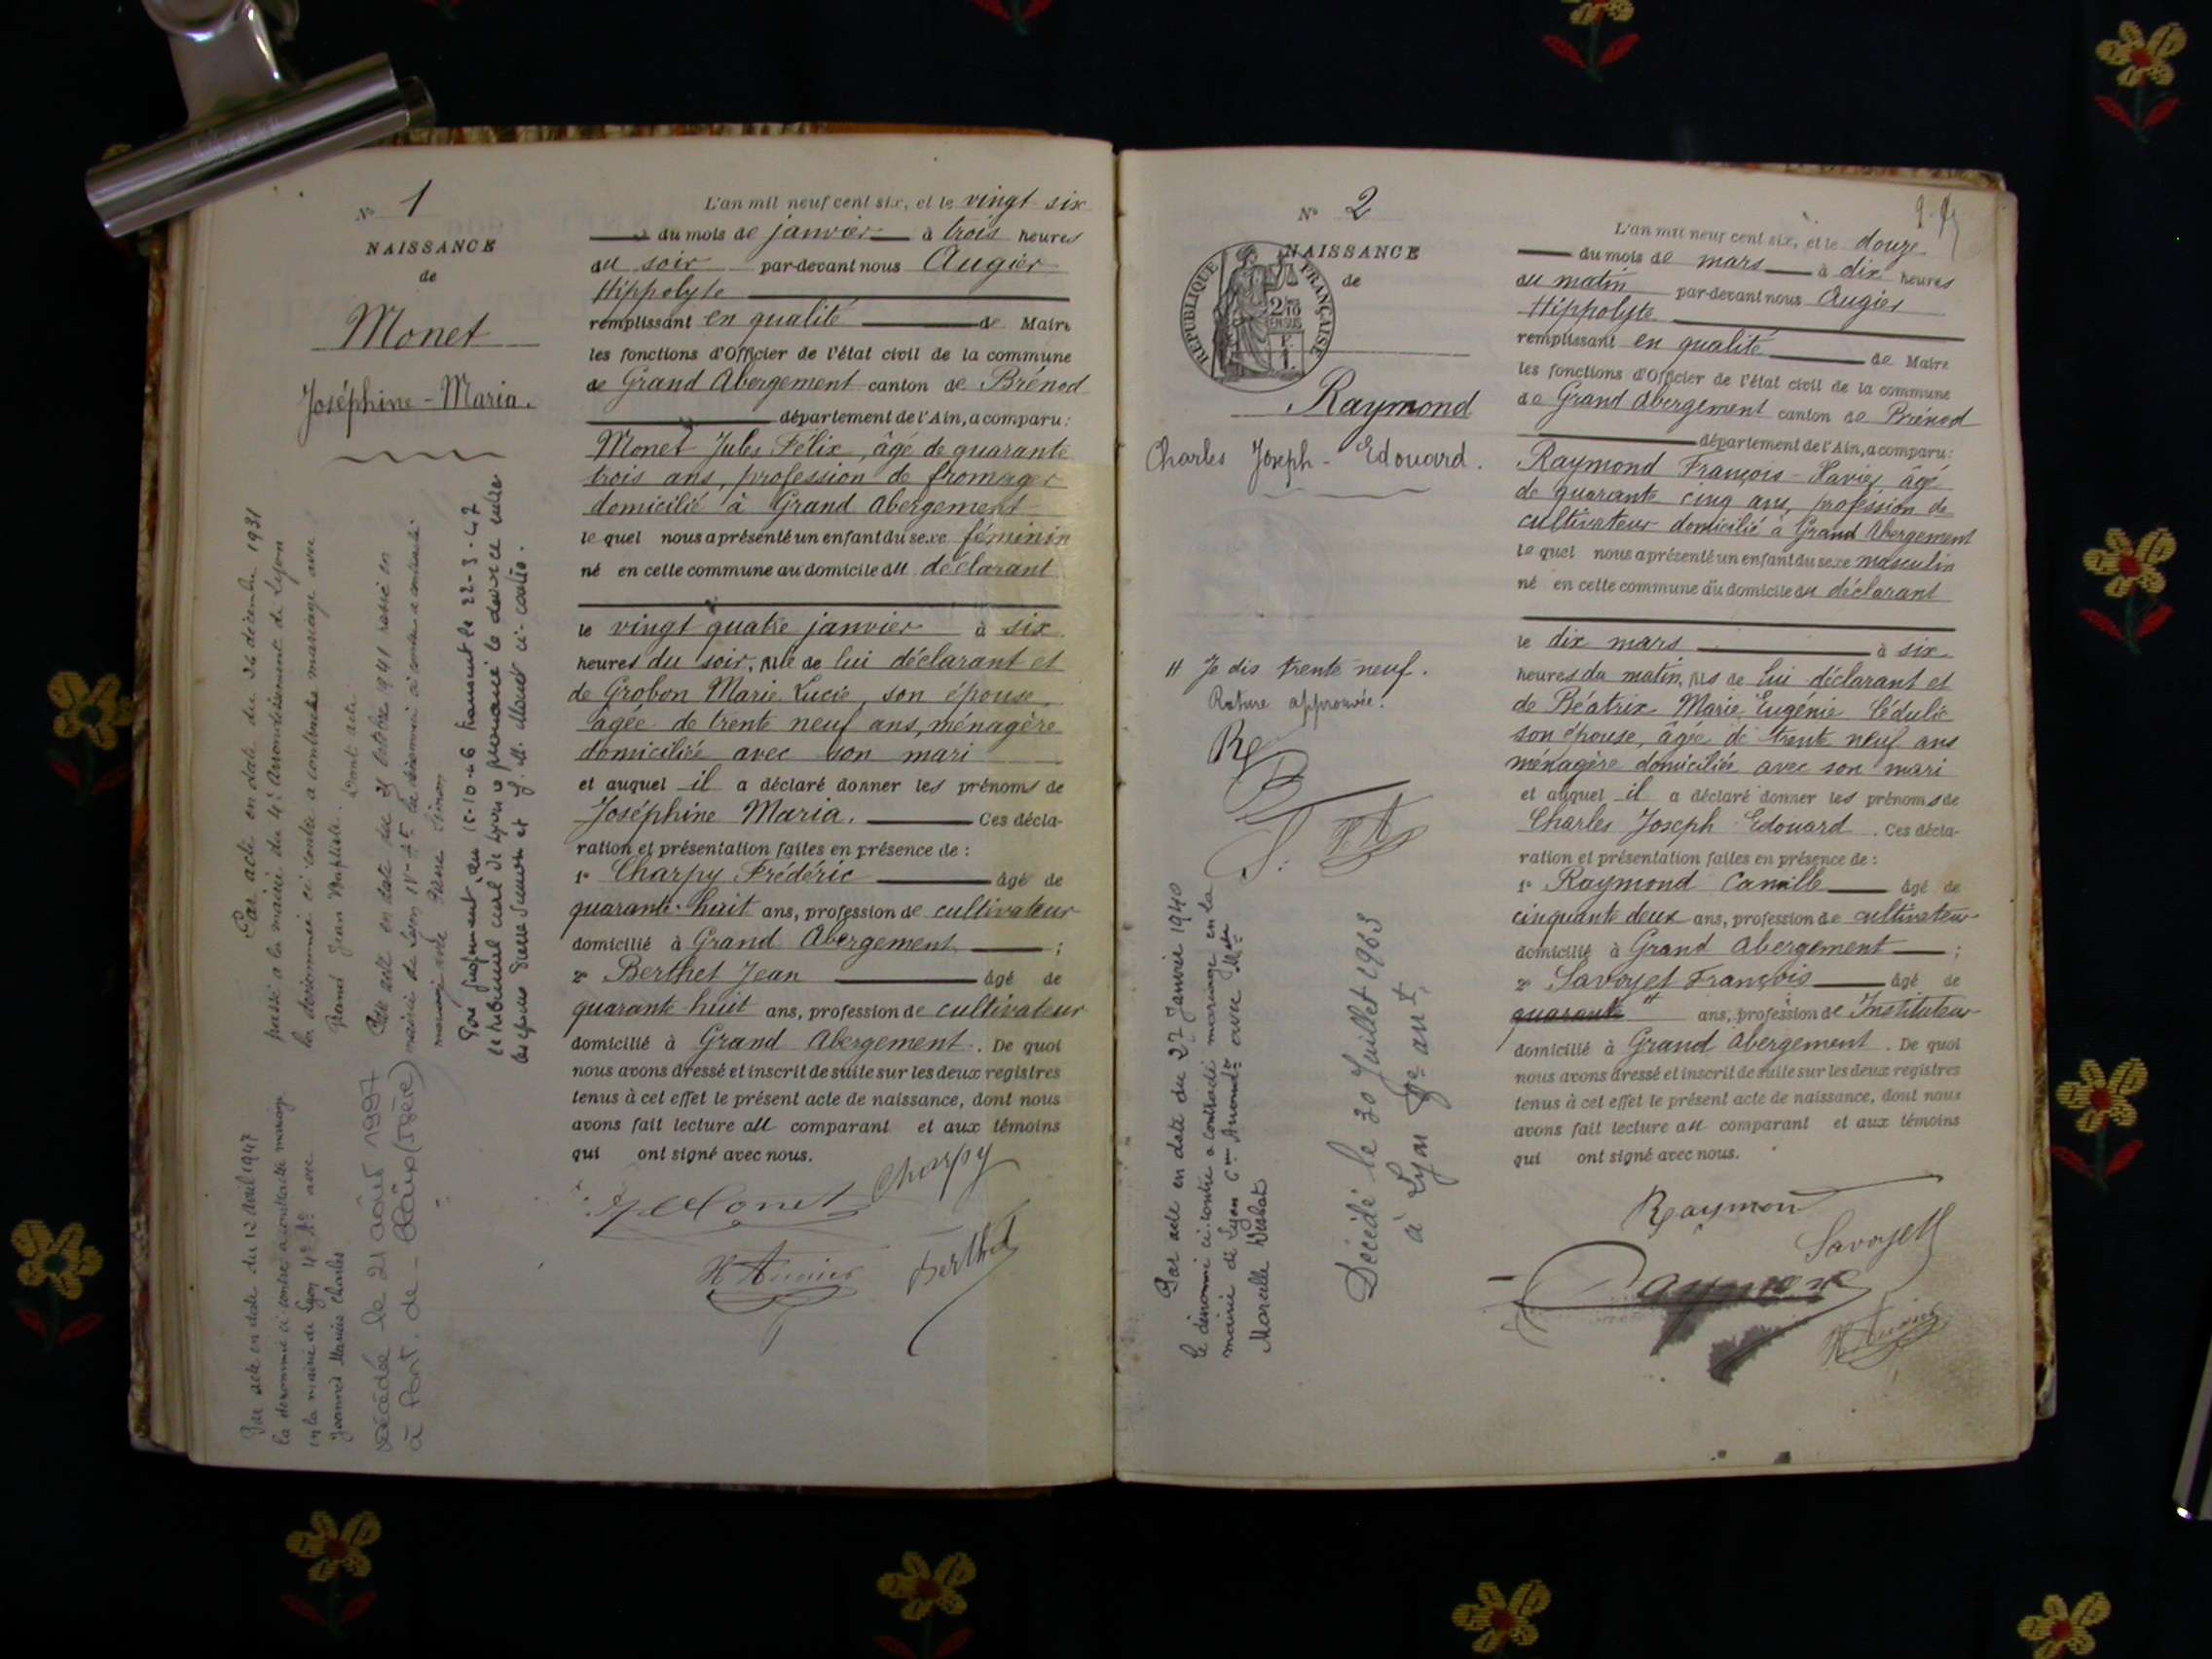 Nº 1
NAISSANCE
de
Monet
Joséphine - Maria.
Par acte en date du 26 décembre 1931
passé à la mairie du 4e arrondissement de Lyon
la dénommée ci-contre a contracté mariage avec
Jean Baptiste. Dont acte.
Par acte en date du 31 octobre 1941 passé en
mairie de Lyon IVe la dénommée ci-contre a contracté
mariage avec Pierre Simon
Par jugement du 15-10-46 transcrit le 22-3-47
le tribunal civil de Lyon a prononcé le divorce entre
les époux Pierre Simon et J. M. Monet ci-contre.
Par acte en date du 12 avril 1947
la dénommée ci-contre a contracté mariage
en la mairie de Lyon 4e avec
Marius Charles
Décédée le 21 août 1997
à Pont-de- (Isère)
L'an mil neuf cent six, et le vingt six
du mois de janvier à trois heures
du soir par-devant nous Augier
Hippolyte
remplissant en qualité de Maire
les fonctions d'Officier de l'état civil de la commune
de Grand Abergement canton de Brénod
département de l'Ain, a comparu:
Monet Jules Félix, âgé de quarante
trois ans, profession de fromager
domicilié à Grand Abergement
le quel nous a présenté un enfant du sexe féminin
né en cette commune au domicile du déclarant
le vingt quatre janvier à six
heures du soir, fille de lui déclarant et
de Grobon Marie Lucie, son épouse
âgée de trente neuf ans, ménagère
domiciliée avec son mari
et auquel il a déclaré donner les prénoms de
Joséphine Maria. Ces décla-
ration et présentation faites en présence de :
1º Charpy Frédéric âgé de
quarante-huit ans, profession de cultivateur
domicilié à Grand Abergement ;
2º Berthet Jean âgé de
quarante huit ans, profession de cultivateur
domicilié à Grand Abergement. De quoi
nous avons dressé et inscrit de suite sur les deux registres
tenus à cet effet le présent acte de naissance, dont nous
avons fait lecture au comparant et aux témoins
qui ont signé avec nous.
Monet Charpy
H Augier Berthet
Nº 2
NAISSANCE
de
RÉPUBLIQUE FRANÇAISE
2/10
EN SUS
Raymond
Charles Joseph - Edouard.
H Je dis trente neuf.
Rature approuvée.
Par acte en date du 27 Janvier 1940
le dénommé ci-contre a contracté mariage en la
mairie de Lyon 6me Arrondt avec
Marcelle
Décédé le 30 Juillet 1963
à Lyon
L'an mil neuf cent six, et le douze
du mois de mars à dix heures
du matin par-devant nous Augier
Hippolyte
remplissant en qualité de Maire
les fonctions d'Officier de l'état civil de la commune
de Grand Abergement canton de Brénod
département de l'Ain, a comparu:
Raymond François-Xavier âgé
de quarante cinq ans, profession de
cultivateur domicilié à Grand Abergement
le quel nous a présenté un enfant du sexe masculin
né en cette commune au domicile du déclarant
le dix mars à six
heures du matin, fils de lui déclarant et
de Béatrix Marie Eugénie Cédulie
son épouse, âgée de trente neuf ans
ménagère domiciliée avec son mari
et auquel il a déclaré donner les prénoms de
Charles Joseph Edouard. Ces décla-
ration et présentation faites en présence de :
1º Raymond Camille âgé de
cinquante deux ans, profession de cultivateur
domicilié à Grand Abergement ;
2º Savoyet François âgé de
quarante H ans, profession de Instituteur
domicilié à Grand Abergement. De quoi
nous avons dressé et inscrit de suite sur les deux registres
tenus à cet effet le présent acte de naissance, dont nous
avons fait lecture au comparant et aux témoins
qui ont signé avec nous.
Raymond
Savoyet
Raymond
H Augier